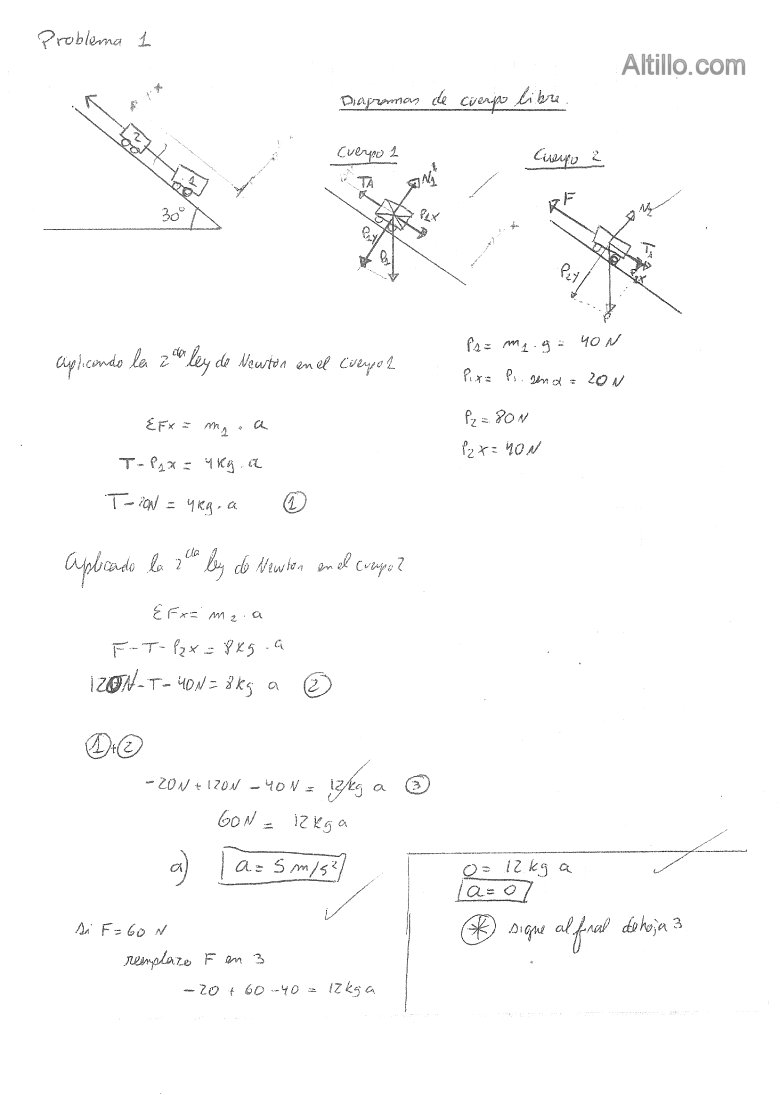 Problema 1
Altillo.com
Diagramas de cuerpo libre.
Cuerpo 1
Cuerpo 2
2
1
30°
TA
N1
P1X
P1Y
P1
F
N2
TA
P2X
P2Y
P
P1 = m1 · g = 40 N
P1x = P1 · senα = 20 N
P2 = 80 N
P2x = 40 N
Aplicando la 2da ley de Newton en el cuerpo 1
ΣFx = m1 · a
T - P1x = 4 Kg · a
T - 20N = 4Kg · a ①
Aplicado la 2da ley de Newton en el cuerpo 2
ΣFx = m2 · a
F - T - P2x = 8Kg · a
120N - T - 40N = 8Kg a ②
① + ②
-20N + 120N - 40N = 12Kg a ③
60N = 12Kg a
a) a = 5 m/s²
Si F = 60 N
reemplazo F en 3
-20 + 60 - 40 = 12Kg a
0 = 12 Kg a
a = 0
* sigue al final de hoja 3